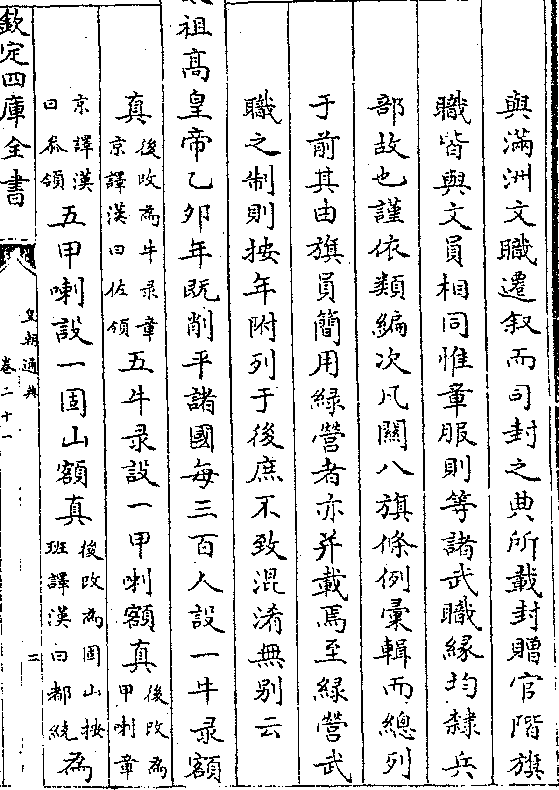 與滿洲文職遷叙而司封之典所載封贈官階旗
職皆與文員相同惟章服則等諸武職緣均隸兵
部故也謹依類編次凡關八旗條例彚輯而總列
于前其由旗員簡用綠營者亦并載焉至綠營武
職之制則按年附列于後庶不致混淆無别云
祖髙皇帝乙夘年既削平諸國每三百人設一牛录額
真後改為牛录章京譯漢曰佐領五牛录設一甲喇額真後改為甲喇章
京譯漢曰叅領五甲喇設一固山額真後改為固山按班譯漢曰都統為
欽定四庫全書
皇朝通典
卷二十一
二